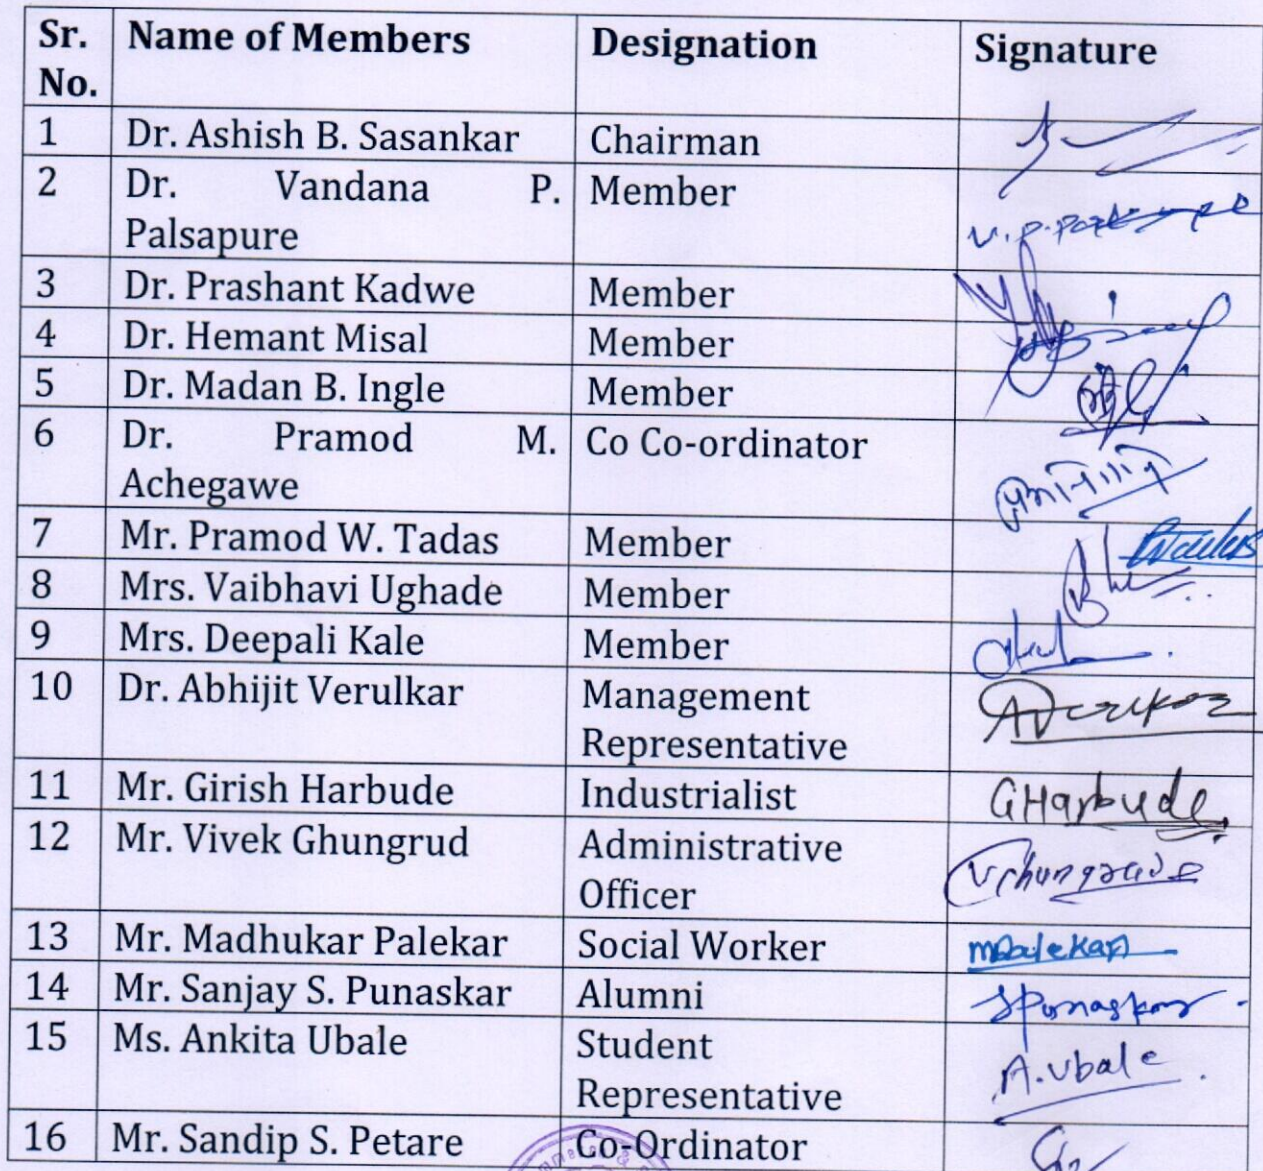 Sr. Name of Members Designation Signature
No.
1 Dr. Ashish B. Sasankar Chairman
2 Dr. Vandana P. Member
Palsapure
3 Dr. Prashant Kadwe Member
4 Dr. Hemant Misal Member
5 Dr. Madan B. Ingle Member
6 Dr. Pramod M. Co Co-ordinator
Achegawe
7 Mr. Pramod W. Tadas Member
8 Mrs. Vaibhavi Ughade Member
9 Mrs. Deepali Kale Member
10 Dr. Abhijit Verulkar Management
Representative
11 Mr. Girish Harbude Industrialist GHarbude
12 Mr. Vivek Ghungrud Administrative
Officer
13 Mr. Madhukar Palekar Social Worker
14 Mr. Sanjay S. Punaskar Alumni SPunaskar
15 Ms. Ankita Ubale Student A.Ubale
Representative
16 Mr. Sandip S. Petare Co-Ordinator